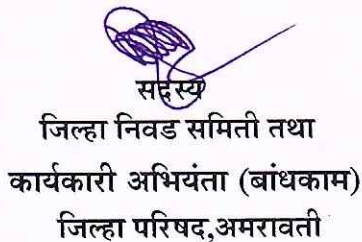 सदस्य
जिल्हा निवड समिती तथा
कार्यकारी अभियंता (बांधकाम)
जिल्हा परिषद,अमरावती